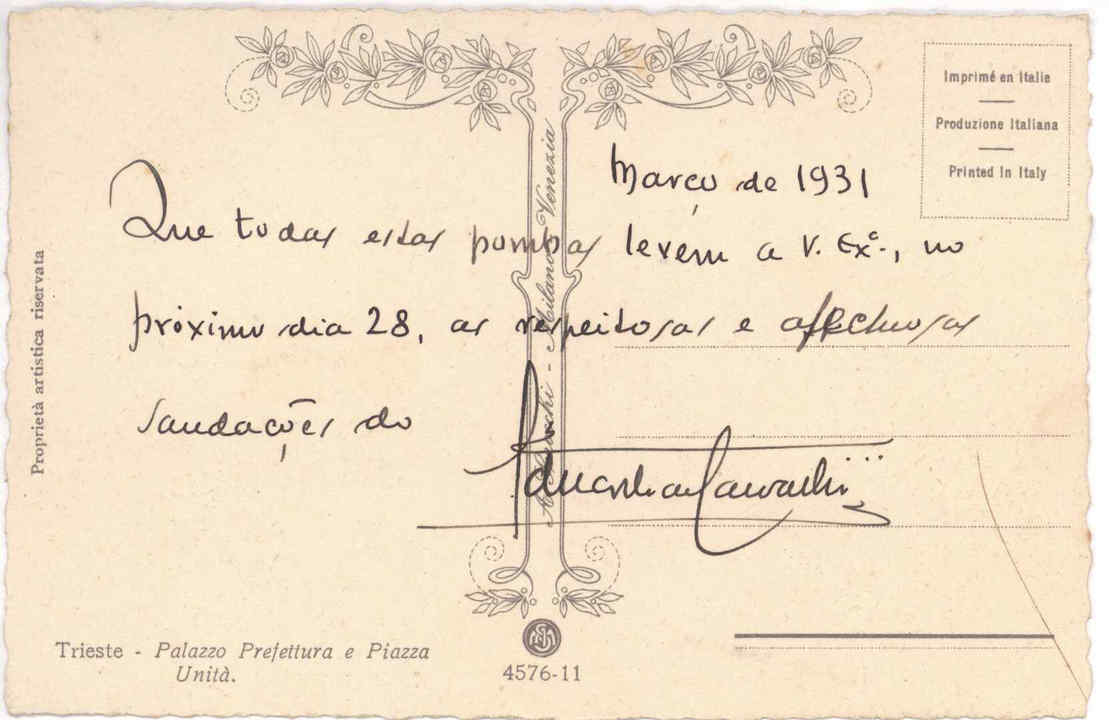 Imprimé en Italie
Produzione Italiana
Printed in Italy
Março de 1931
Que todas estas pombas levem a V. Exª., no
próximo dia 28, as respeitosas e afectuosas
saudações do
Proprietà artistica riservata
Milano - Venezia
Trieste - Palazzo Prefettura e Piazza
Unità.
4576-11